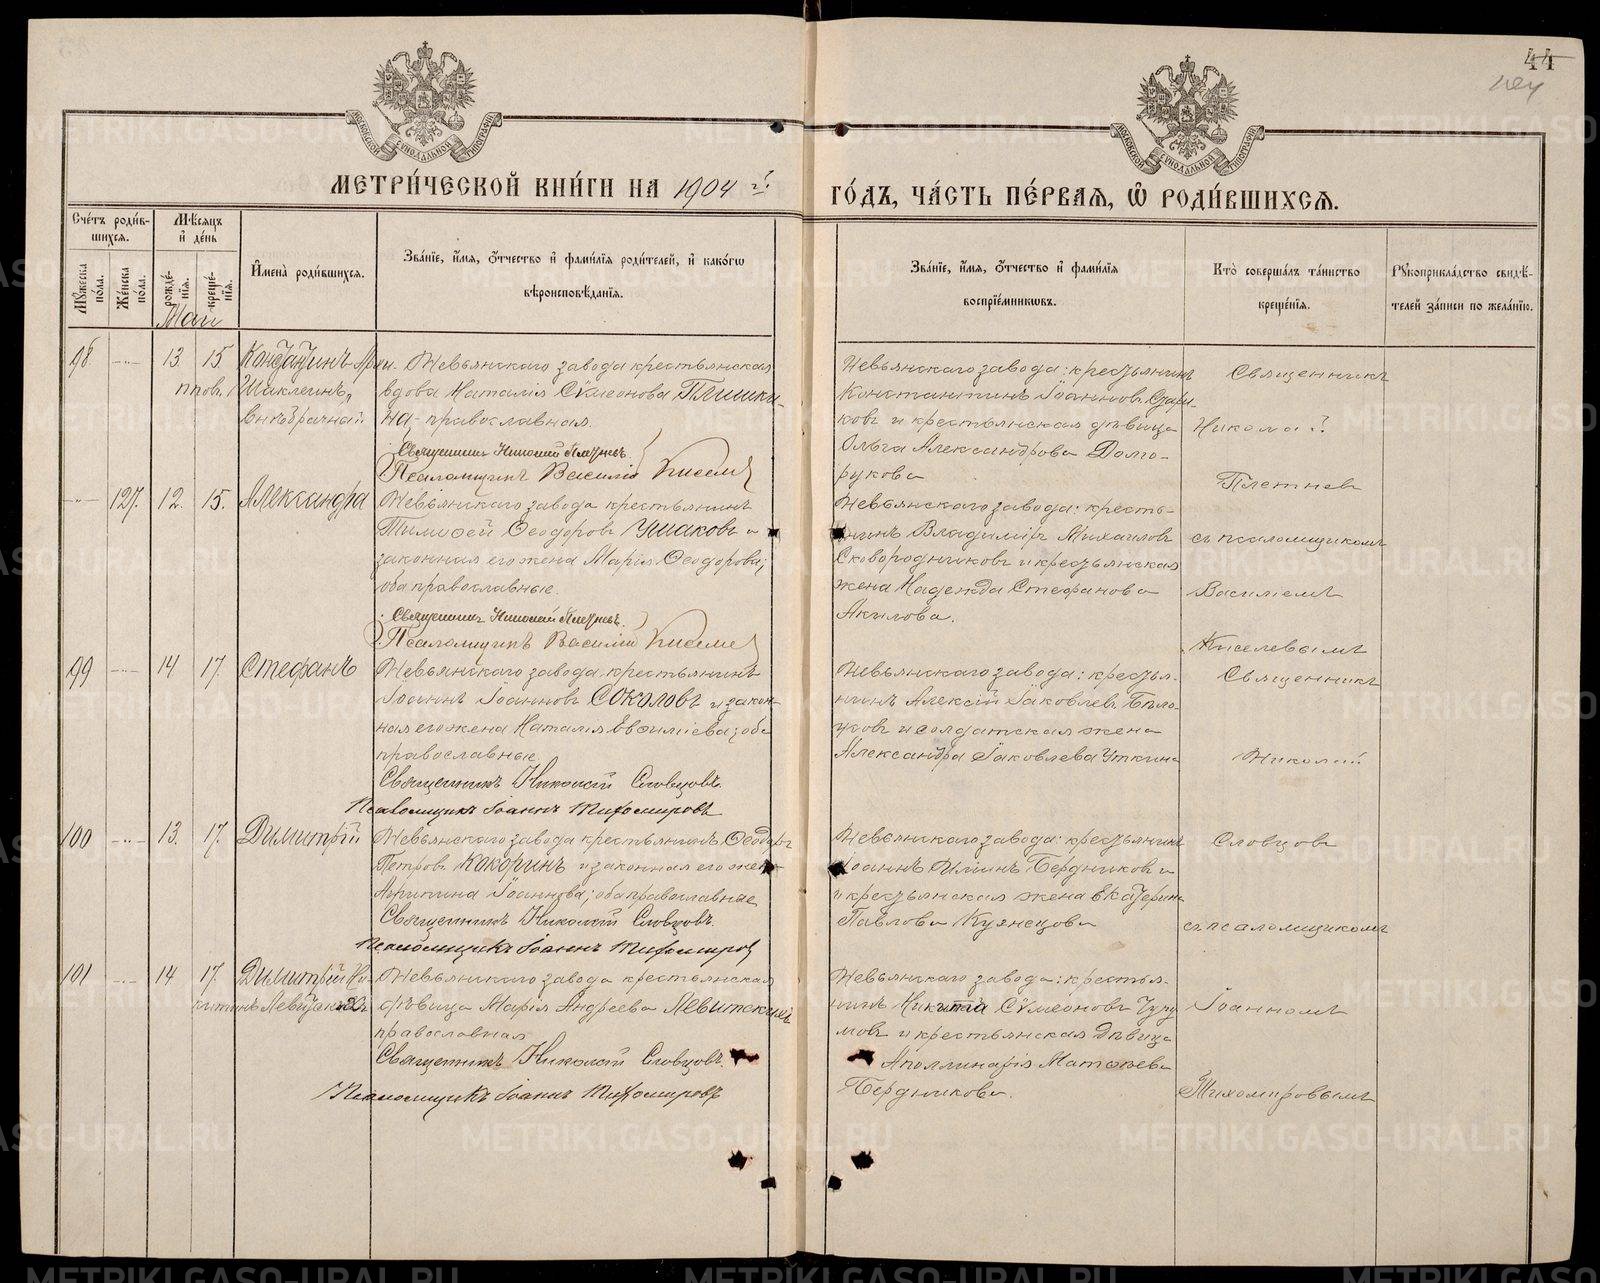 44
МЕТРИ́ЧЕСКОЙ КНИ́ГИ НА 1904 й.
ГО́ДЪ, ЧА́СТЬ ПЕ́РВАЯ, Ѡ҆ РОДИ́ВШИХСЯ.
Счéтъ роди́в-
шихся.
Мꙋ́жеска по́ла.
Же́нска по́ла.
Мѣ́сяцъ и҆ де́нь
рожде́-нїя.
креще́-нїя.
И҆мена̀ роди́вшихся.
Зва́нїе, и҆́мя, ѻ҆́тчество и҆ фами́лїя роди́телей, и҆ како́гѡ
вѣроисповѣ́данїя.
Зва́нїе, и҆́мя, ѻ҆́тчество и҆ фами́лїя
воспрїе́мниковъ.
Кто̀ соверша́лъ та́инство
креще́нїя.
Рꙋкоприкла́дство свидѣ́-
телей за́писи по жела́нїю.
Май
98 - 13. 15. Константинъ
Шаклеинъ,
внѣбрачный
Невьянскаго завода крестьянская
вдова Наталія Сѵмеонова Плишки-
на, православная.
Священникъ Николай Плетневъ.
Псаломщикъ Василій Киселевъ
Невьянскаго завода: крестьянинъ
Константинъ Іоанновъ Стари-
ковъ и крестьянская дѣвица
Ольга Александрова Долго-
рукова
Священникъ
Николай
Плетневъ
- 127. 12. 15. Александра
Невьянскаго завода крестьянинъ
Тимофей Ѳеодоровъ Ушаковъ и
законная его жена Марія Ѳеодорова;
оба православные.
Священникъ Николай Плетневъ.
Псаломщикъ Василій Киселевъ
Невьянскаго завода: кресть-
янинъ Владиміръ Михаиловъ
Сковородниковъ и крестьянская
жена Надежда Стефанова
Акилова.
съ псаломщикомъ
Василіемъ
Киселевымъ
99 - 14 17. Стефанъ
Невьянскаго завода крестьянинъ
Іоаннъ Іоанновъ Соколовъ и закон-
ная его жена Наталія Евѳиміева; оба
православные
Священникъ Николай Словцовъ.
Псаломщикъ Іоаннъ Тихомировъ
Невьянскаго завода: крестья-
нинъ Алексій Іаковлевъ
и солдатская жена
Александра Іаковлева Уткина
Священникъ
Николай
100 - 13. 17. Димитрій
Невьянскаго завода крестьянинъ Ѳеодоръ
Петровъ Кокоринъ и законная его жена
Агрипина Іоаннова; оба православные
Священникъ Николай Словцовъ.
Псаломщикъ Іоаннъ Тихомировъ
Невьянскаго завода: крестьянинъ
Іоаннъ Бердниковъ
и крестьянская жена Екатерина
Павлова Кузнецова
Словцовъ
съ псаломщикомъ
101 - 14 17. Димитрій Ни-
китинъ
Невьянскаго завода крестьянская
дѣвица Марія Андреева Левитскихъ
православная
Священникъ Николай Словцовъ.
Псаломщикъ Іоаннъ Тихомировъ
Невьянскаго завода: крестья-
нинъ Никита Сѵмеоновъ Чучу-
мовъ и крестьянская дѣвица
Аполлинарія Матѳеева
Бердникова.
Іоанномъ
Тихомировымъ
METRIKI.GASO-URAL.RU